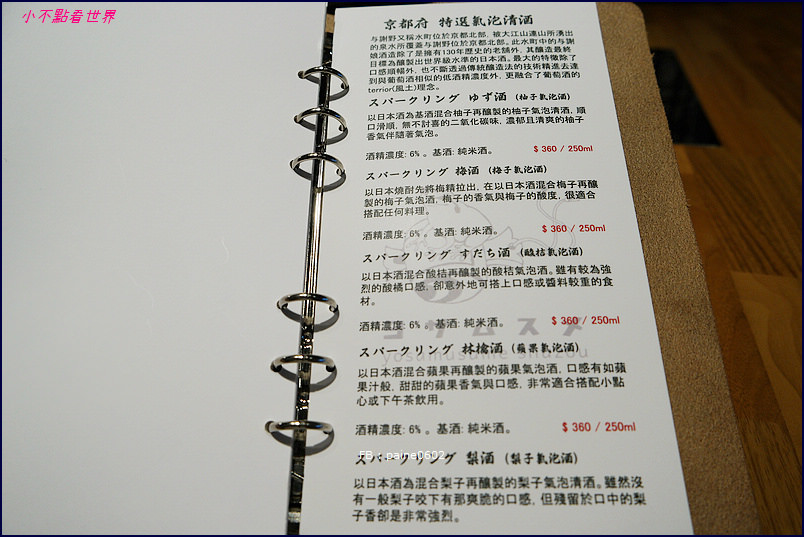 小不點看世界
京都府 特選氣泡清酒
与謝野又稱水町位於京都北部，被大江山連山所湧出
的泉水所覆蓋与謝野位於京都北部。此水町中的与謝
娘酒造除了是擁有130年歷史的老舖外，其釀造最終
目標為釀製出世界級水準的日本酒。最大的特徵除了
口感順暢外，也不斷透過傳統釀造法的技術精進去達
到與葡萄酒相似的低酒精濃度外，更融合了葡萄酒的
terrior(風土)理念。
スパークリング ゆず酒 (柚子氣泡酒)
以日本酒為基酒混合柚子再釀製的柚子氣泡清酒，順
口滑順，無不討喜的二氧化碳味，濃郁且清爽的柚子
香氣伴隨著氣泡。
酒精濃度: 6% 。基酒: 純米酒。 $ 360 / 250ml
スパークリング 梅酒 (梅子氣泡酒)
以日本燒酎先將梅精拉出，在以日本酒混合梅子再釀
製的梅子氣泡酒，梅子的香氣與梅子的酸度，很適合
搭配任何料理。
酒精濃度: 6% 。基酒: 純米酒。 $ 360 / 250ml
スパークリング すだち酒 (酸桔氣泡酒)
以日本酒混合酸桔再釀製的酸桔氣泡酒。雖有較為強
烈的酸橘口感，卻意外地可搭上口感或醬料較重的食
材。
酒精濃度: 6% 。基酒: 純米酒。 $ 360 / 250ml
ヨサムスメ
yosamusume shuzou
スパークリング 林檎酒 (蘋果氣泡酒)
以日本酒混合蘋果再釀製的蘋果氣泡酒，口感有如蘋
果汁般，甜甜的蘋果香氣與口感，非常適合搭配小點
心或下午茶飲用。
酒精濃度: 6% 。基酒: 純米酒。 $ 360 / 250ml
FB：paine0602
スパークリング 梨酒 (梨子氣泡酒)
以日本酒為混合梨子再釀製的梨子氣泡清酒。雖然沒
有一般梨子咬下有那爽脆的口感，但殘留於口中的梨
子香卻是非常強烈。